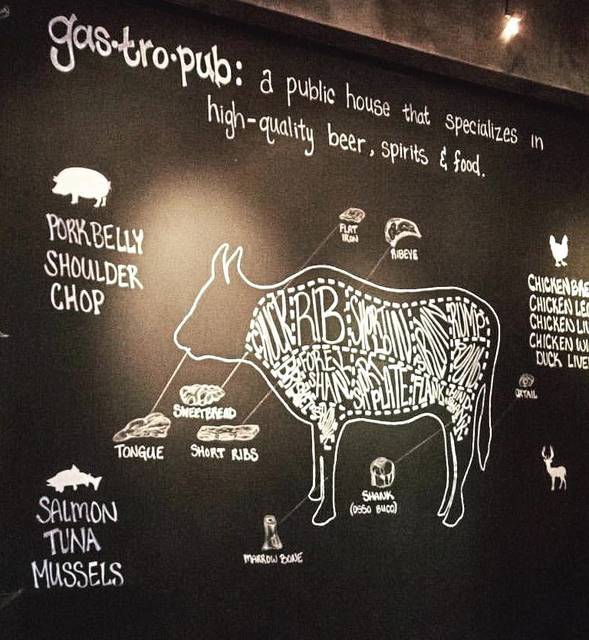 gas·tro·pub: a public house that specializes in
high-quality beer, spirits & food.
PORKBELLY
SHOULDER
CHOP
FLAT
IRON
RIBEYE
CHICKEN
CHICKEN
CHICKEN
CHICKEN
DUCK
CHUCK RIB SIRLOIN RUMP
FORE
SHANK
PLATE FLANK
OXTAIL
SWEETBREAD
TONGUE
SHORT RIBS
SHANK
(OSSO BUCO)
MARROW BONE
SALMON
TUNA
MUSSELS